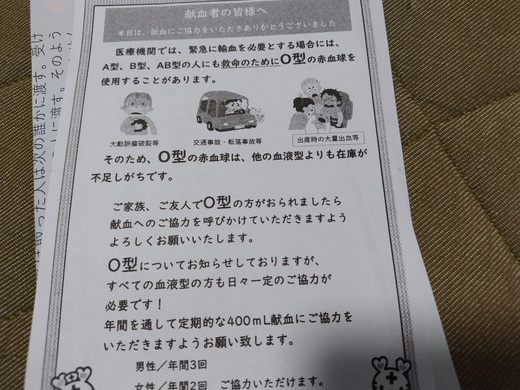 献血者の皆様へ
本日は、献血にご協力をいただきありがとうございました
医療機関では、緊急に輸血を必要とする場合には、
A型、B型、AB型の人にも救命のためにO型の赤血球を
使用することがあります。
大動脈瘤破裂等
交通事故・転落事故等
出産時の大量出血等
そのため、O型の赤血球は、他の血液型よりも在庫が
不足しがちです。
ご家族、ご友人でO型の方がおられましたら
献血へのご協力を呼びかけていただきますよう
よろしくお願いいたします。
O型についてお知らせしておりますが、
すべての血液型の方も日々一定のご協力が
必要です！
年間を通して定期的な400mL献血にご協力を
いただきますようお願い致します。
男性／年間3回
女性／年間2回 ご協力いただけます。
った人は次の誰かに渡す。受け
に渡す。そのよう